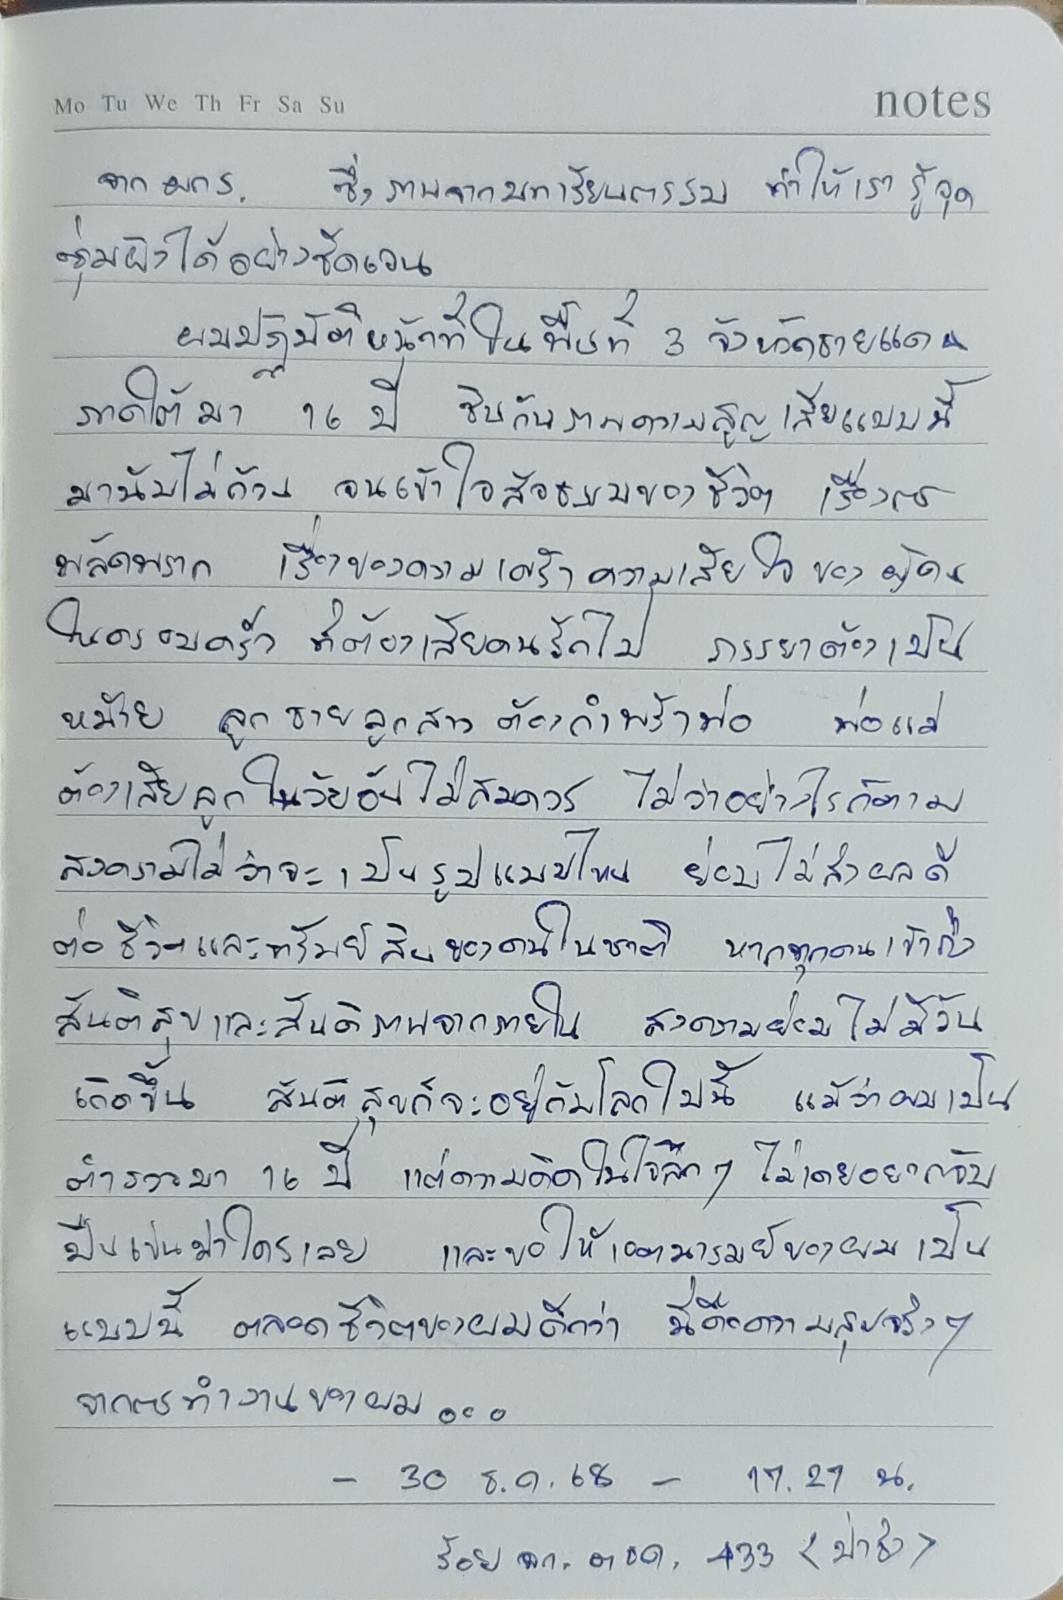 Mo Tu We Th Fr Sa Su
notes
จาก ผกร. ซึ่งภาพจาก ทำให้เรารู้จุด
ซุ่มยิงได้อย่างชัดเจน
ผมปฏิบัติหน้าที่ในพื้นที่ 3 จังหวัดชายแดน
ภาคใต้มา 16 ปี ชินกับภาพความสูญเสียแบบนี้
มานับไม่ถ้วน จนเข้าใจสัจธรรมของชีวิต เรื่องการ
พลัดพราก เรื่องของความเศร้าความเสียใจของผู้คน
ในครอบครัว ที่ต้องเสียคนรักไป ภรรยาต้องเป็น
หม้าย ลูกชายลูกสาวต้องกำพร้าพ่อ พ่อแม่
ต้องเสียลูกในวัยอันไม่สมควร ไม่ว่าอย่างไรก็ตาม
สงครามไม่ว่าจะเป็นรูปแบบไหน ย่อมไม่ส่งผลดี
ต่อชีวิตและทรัพย์สินของคนในชาติ หากทุกคนเข้าถึง
สันติสุขและสันติภาพจากภายใน สงครามย่อมไม่มีวัน
เกิดขึ้น สันติสุขก็จะอยู่กับโลกใบนี้ แม้ว่าผมเป็น
ตำรวจมา 16 ปี แต่ความคิดในใจลึกๆ ไม่เคยอยากจับ
ปืนเข่นฆ่าใครเลย และขอให้เจตนารมย์ของผมเป็น
แบบนี้ ตลอดชีวิตของผมดีกว่า นี่คือความสุขจริงๆ
จากการทำงานของผม...
- 30 ธ.ค. 68 - 17.27 น.
ร้อย ตชด. 433 (ป่าชิง)